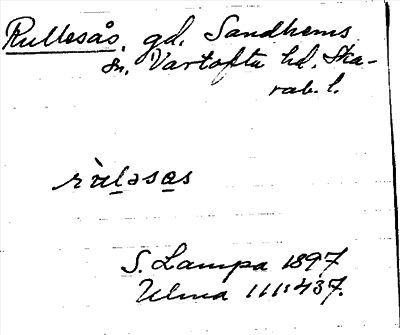 Rullesås, gd, Sandhems
sn, Vartofta hd, Ska-
rab. l.
rùl̲əsa̲s
S. Lampa 1897
Ulma 111:437.